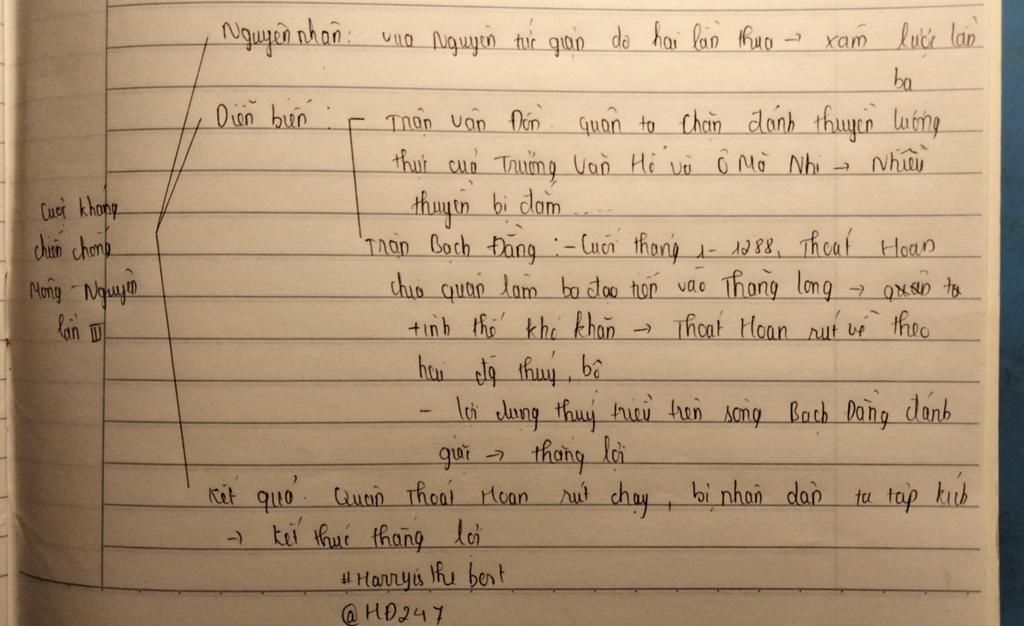 Nguyên nhân: vua Nguyên tức giận do hai lần thua → xâm lược lần
ba
Diễn biến: Trận Vân Đồn: quân ta chặn đánh thuyền lương
thực của Trương Văn Hổ và Ô Mã Nhi → Nhiều
thuyền bị đắm ....
Cuộc kháng
chiến chống
Mông-Nguyên
lần III
Trận Bạch Đằng: - Cuối tháng 1-1288, Thoát Hoan
chia quân làm ba đạo tiến vào Thăng Long → quân ta
tình thế khó khăn → Thoát Hoan rút về theo
hai đg thuỷ, bộ
- lợi dụng thuỷ triều trên sông Bạch Đằng đánh
giặc → thắng lợi
Kết quả: Quân Thoát Hoan rút chạy, bị nhân dân ta tập kích
→ kết thúc thắng lợi
#Harryis the best
@HD247